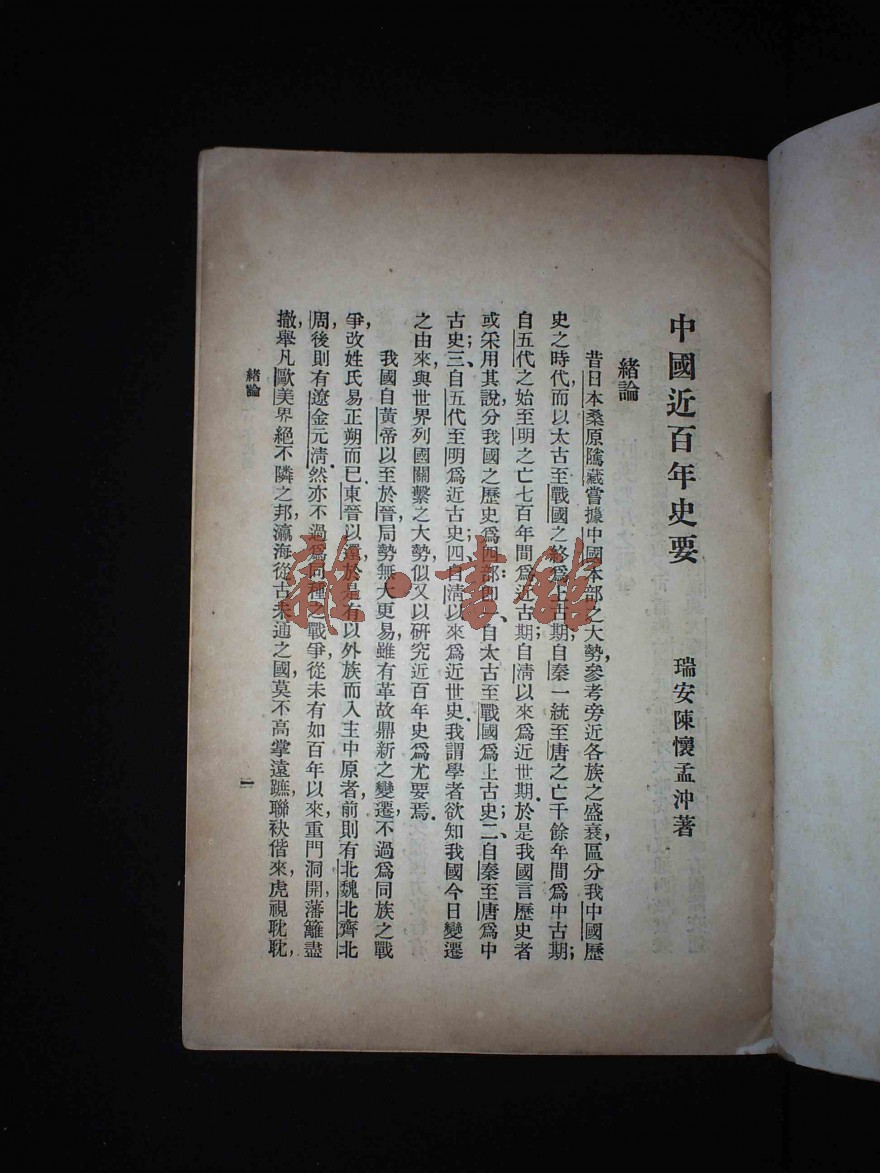 中國近百年史要
瑞安陳懷孟沖著
緒論
昔日本桑原隲藏嘗據中國本部之大勢，參考旁近各族之盛衰，區分我中國歷
史之時代，而以太古至戰國之終爲上古期；自秦一統至唐之亡千餘年間爲中古期；
自五代之始至明之亡七百年間爲近古期；自清以來爲近世期．於是我國言歷史者
或采用其說，分我國之歷史爲四部：卽一、自太古至戰國爲上古史；二、自秦至唐爲中
古史；三、自五代至明爲近古史；四、自清以來爲近世史．我謂學者欲知我國今日變遷
之由來，與世界列國關繫之大勢，似又以研究近百年史爲尤要焉．
我國自黃帝以至於晉，局勢無大更易，雖有革故鼎新之變遷，不過爲同族之戰
爭，改姓氏易正朔而已．東晉以還，於是有以外族而入主中原者，前則有北魏北齊北
周，後則有遼金元清．然亦不過爲同種之戰爭，從未有如百年以來，重門洞開，藩籬盡
撤，舉凡歐美界絕不隣之邦，瀛海從古未通之國，莫不高掌遠蹠，聯袂偕來，虎視耽耽，
緒論
一
雜·書館